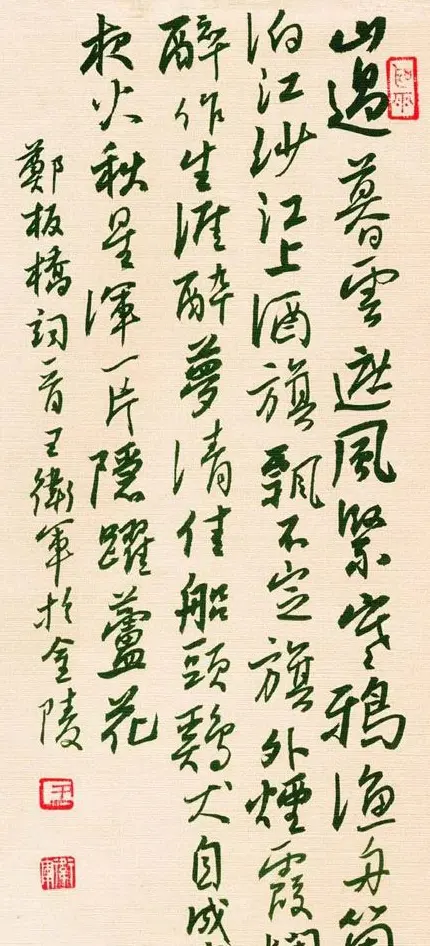 山過暮雲遮風緊寒鴉漁舟箇
泊江沙江上酒旗飄不定旗外煙霞
醉作生涯醉夢清佳船頭鷄犬自成
夜火秋星渾一片隱躍蘆花
鄭板橋詞一首王衛軍於金陵
王
衛軍